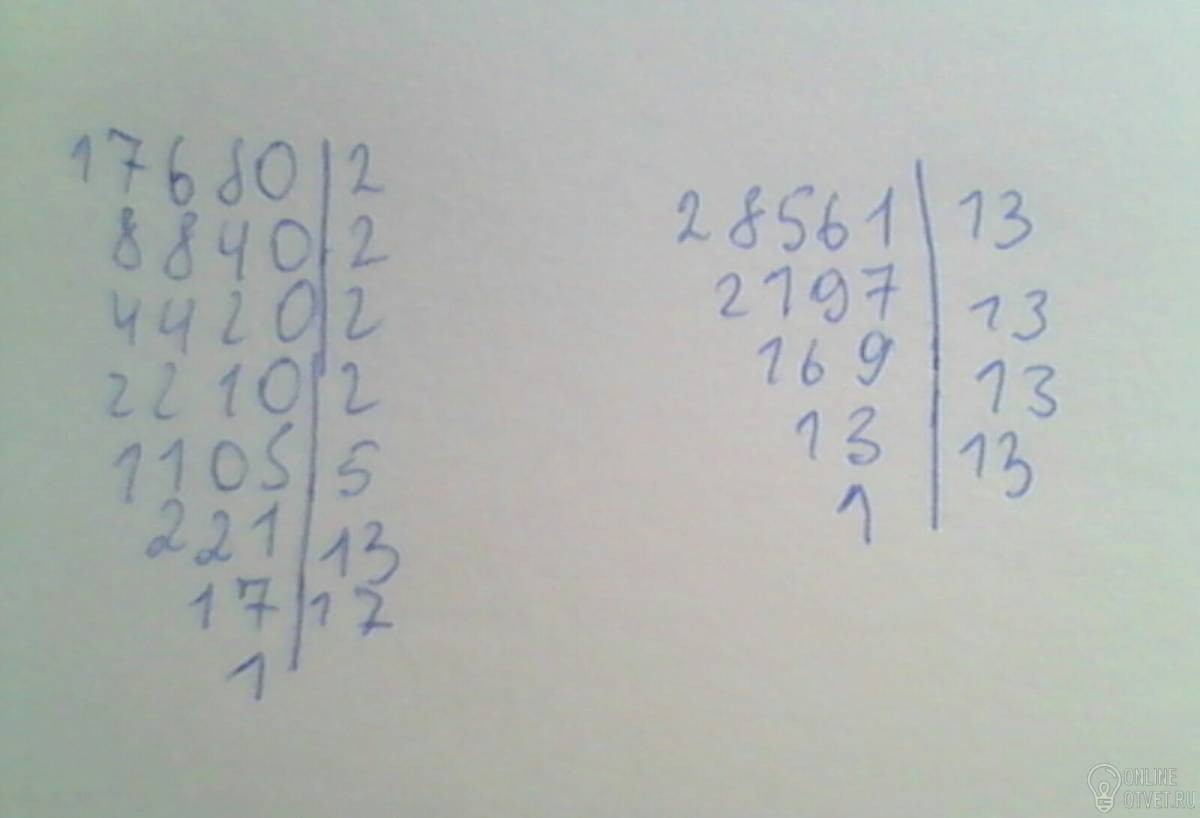 17680 | 2
8840 | 2
4420 | 2
2210 | 2
1105 | 5
221 | 13
17 | 17
1
28561 | 13
2197 | 13
169 | 13
13 | 13
1
ONLINE
OTVET.RU